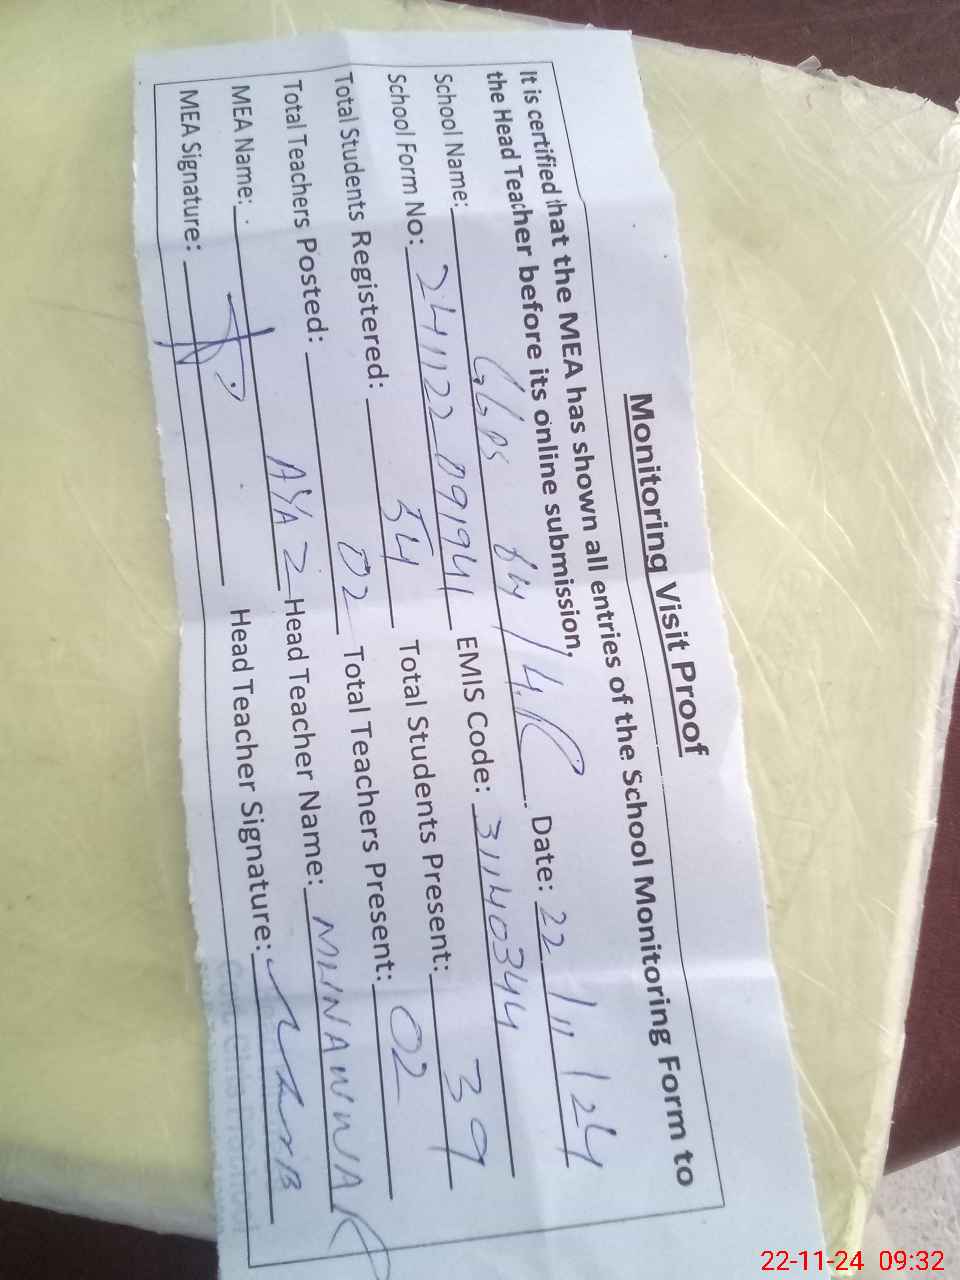 Monitoring Visit Proof
It is certified that the MEA has shown all entries of the School Monitoring Form to
the Head Teacher before its online submission,
School Name: GGPS 84/4.R Date: 22/11/24
School Form No: 24112209194 EMIS Code: 31140344
Total Students Registered: 54 Total Students Present: 39
Total Teachers Posted: 02 Total Teachers Present: 02
MEA Name: AYAZ Head Teacher Name: MUNAWWAR
MEA Signature: Head Teacher Signature:
22-11-24 09:32